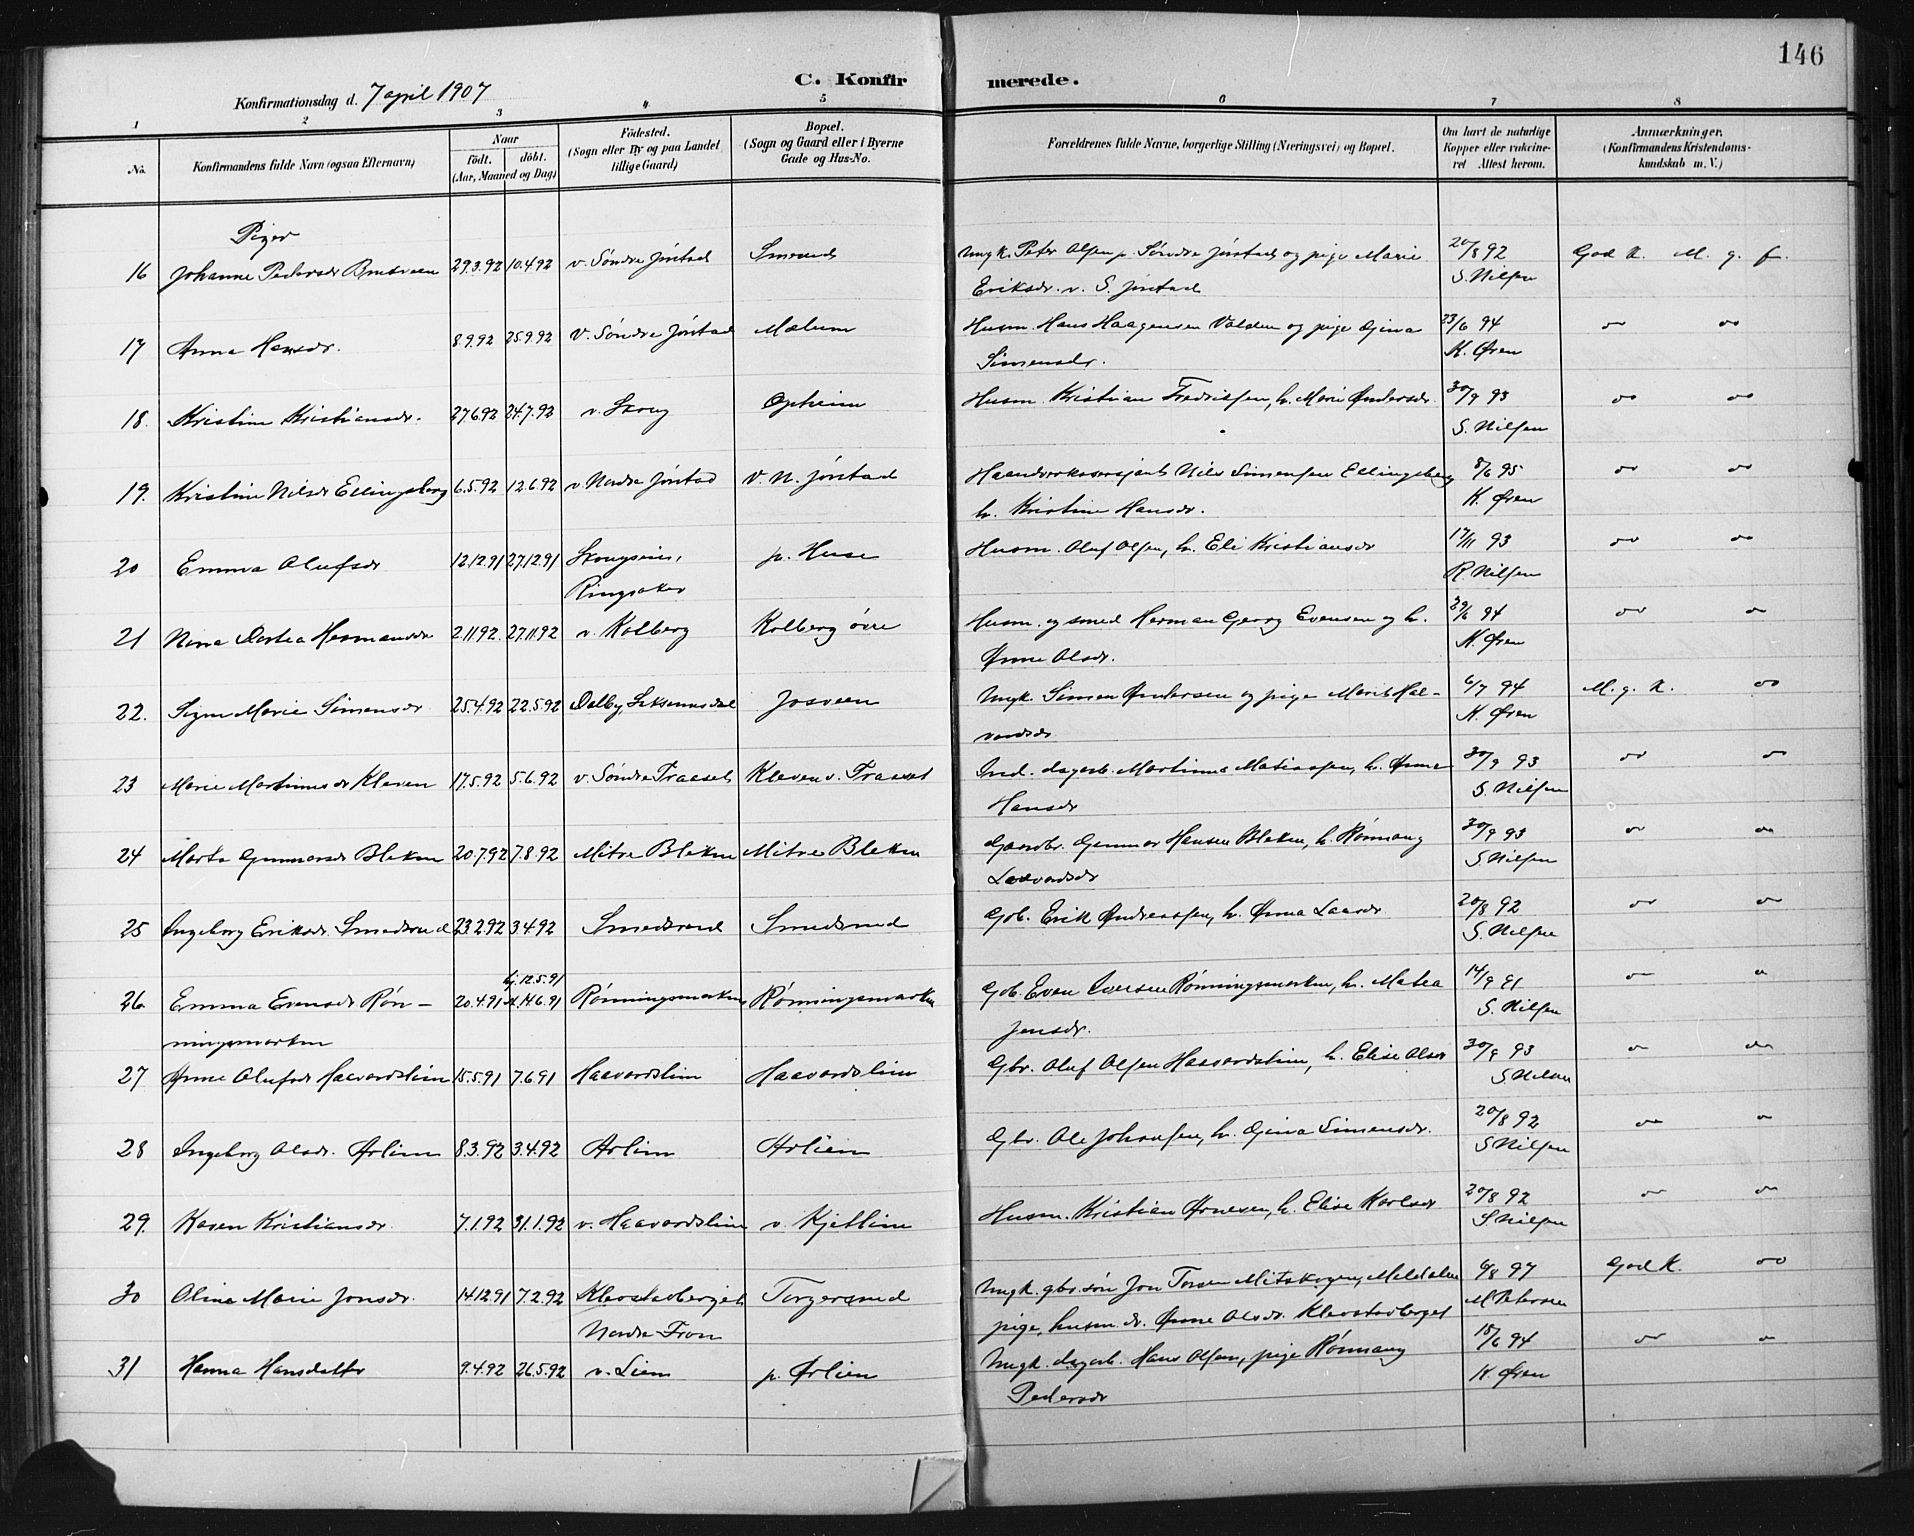 146
C. Konfirmerede.
Konfirmationsdag d. 7 april 1907
1 2 3 4 5 6 7 8
No. Konfirmandens fulde Navn (ogsaa Efternavn) Naar födt. döbt. (Aar, Maaned og Dag) Födested. (Sogn eller By og paa Landet tillige Gaard) Bopæl. (Sogn og Gaard eller i Byerne Gade og Hus-No. Forældrenes fulde Navne, borgerlige Stilling (Næringsvei) og Bopæl. Om havt de naturlige Kopper eller vakcineret Attest herom. Anmærkninger. (Konfirmandens Kristendomskundskab m. V.)
Piger
16 Johanne Pedersdr 29.3.92 10.4.92 v. Søndre Jørstad Ungk. Peter Olsen p. Søndre Jørstad og pige Marie 20/8 92 God K. M. g. f.
Eriksdr. v. S. Jørstad S. Nilsen
17 Anna Hansdr. 8.9.92 25.9.92 v. Søndre Jørstad Mælum Husm. Hans Haagensen Volden og pige Gina 23/6 94 " "
Simensdr. K. Øren
18. Kristine Kristiansdr. 27.6.92 24.7.92 v. Skoug Opheim Husm. Kristian Fredriksen, h. Marie Andersdr. 30/9 93 " "
S. Nilsen
19. Kristine Nilsdr Ellingsberg 6.5.92 12.6.92 v. Nordre Jørstad v. N. Jørstad Haandverkssersjant Nils Simensen Ellingsberg 8/6 95 " "
h. Kristine Hansdr. K. Øren
20 Emma Olufsdr 12.12.91 27.12.91 p. Huse Husm. Oluf Olsen, h. Eli Kristiansdr 17/11 93 " "
Ringsaker R. Nilsen
21 Nina Dortea Hermansdr 2.11.92. 27.11.92 v. Kolberg Kolberg øvre Husm. og smed Herman Georg Evensen og h. 29/6 94 " "
Anne Olsdr. K. Øren
22. Signe Marie Simensdr. 25.4.92 22.5.92 Dalby, Josveen Ungk. Simen Andersen og pige Marit Hal- 6/7 94 M. g. K. "
vorsdr K. Øren
23 Marie Martinusdr Kleven 17.5.92 5.6.92 v. Søndre Traaset Kleven v. Traaset Ind. dagarb. Martinus Matiassen, h. Anne 30/9 93 " "
Hansdr S. Nilsen
24 Marte Gunnarsdr Bleken 20.7.92 7.8.92 Mitre Bleken Mitre Bleken Gaardbr. Gunnar Hansen Bleken, h. Rønnaug 30/9 93 " "
S. Nilsen
25 Ingeborg Eriksdr. Smedsrud 23.2.92 3.4.92 Smedsrud Smedsrud Gbr. Erik Andreassen, h. Anna Larsdr 20/8 92 " "
S. Nilsen
26 Emma Evensdr Røn- 20.4.91 hj. 12.5.91 k. 14.6.91 Rønningsmarken Rønningsmarken Gbr. Even Iversen Rønningsmarken, h. Matea 14/9 91 " "
ningsmarken Jensdr. S. Nilsen
27 Anne Olufsdr Haavardsliin 15.5.91 7.6.91 Haavardsliin Haavardsliin Gbr. Oluf Olsen Haavardsliin, h. Elise Olsdr 30/9 93 " "
S Nilsen
28 Ingeborg Olsdr. Arlien 8.3.92 3.4.92 Arlien Arlien Gbr. Ole Johansen, h. Gina Simensdr. 20/8 92 " "
S Nilsen
29. Karen Kristiansdr. 7.1.92 31.1.92 v. Haavardsliin v. Kjetliin Husm. Kristian Arnesen, h. Elise Karlsdr 20/8 92 " "
S Nilsen
30 Olina Marie Jonsdr. 14.12.91 7.2.92 Klevstadberget Torgersrud Ungk. gbr. søn Jon Mitskogen, Meldalen 6/8 97 God K. "
Nordre Fron pige, husm. dr. Anne Olsdr. Klevstadberget M Petersen
31 Hanna Hansdatter 9.4.92 26.5.92 v. Lien p. Arlien Ungk. dagarb. Hans Olsen, pige Rønnaug 15/6 94 " "
Pedersdr K. Øren